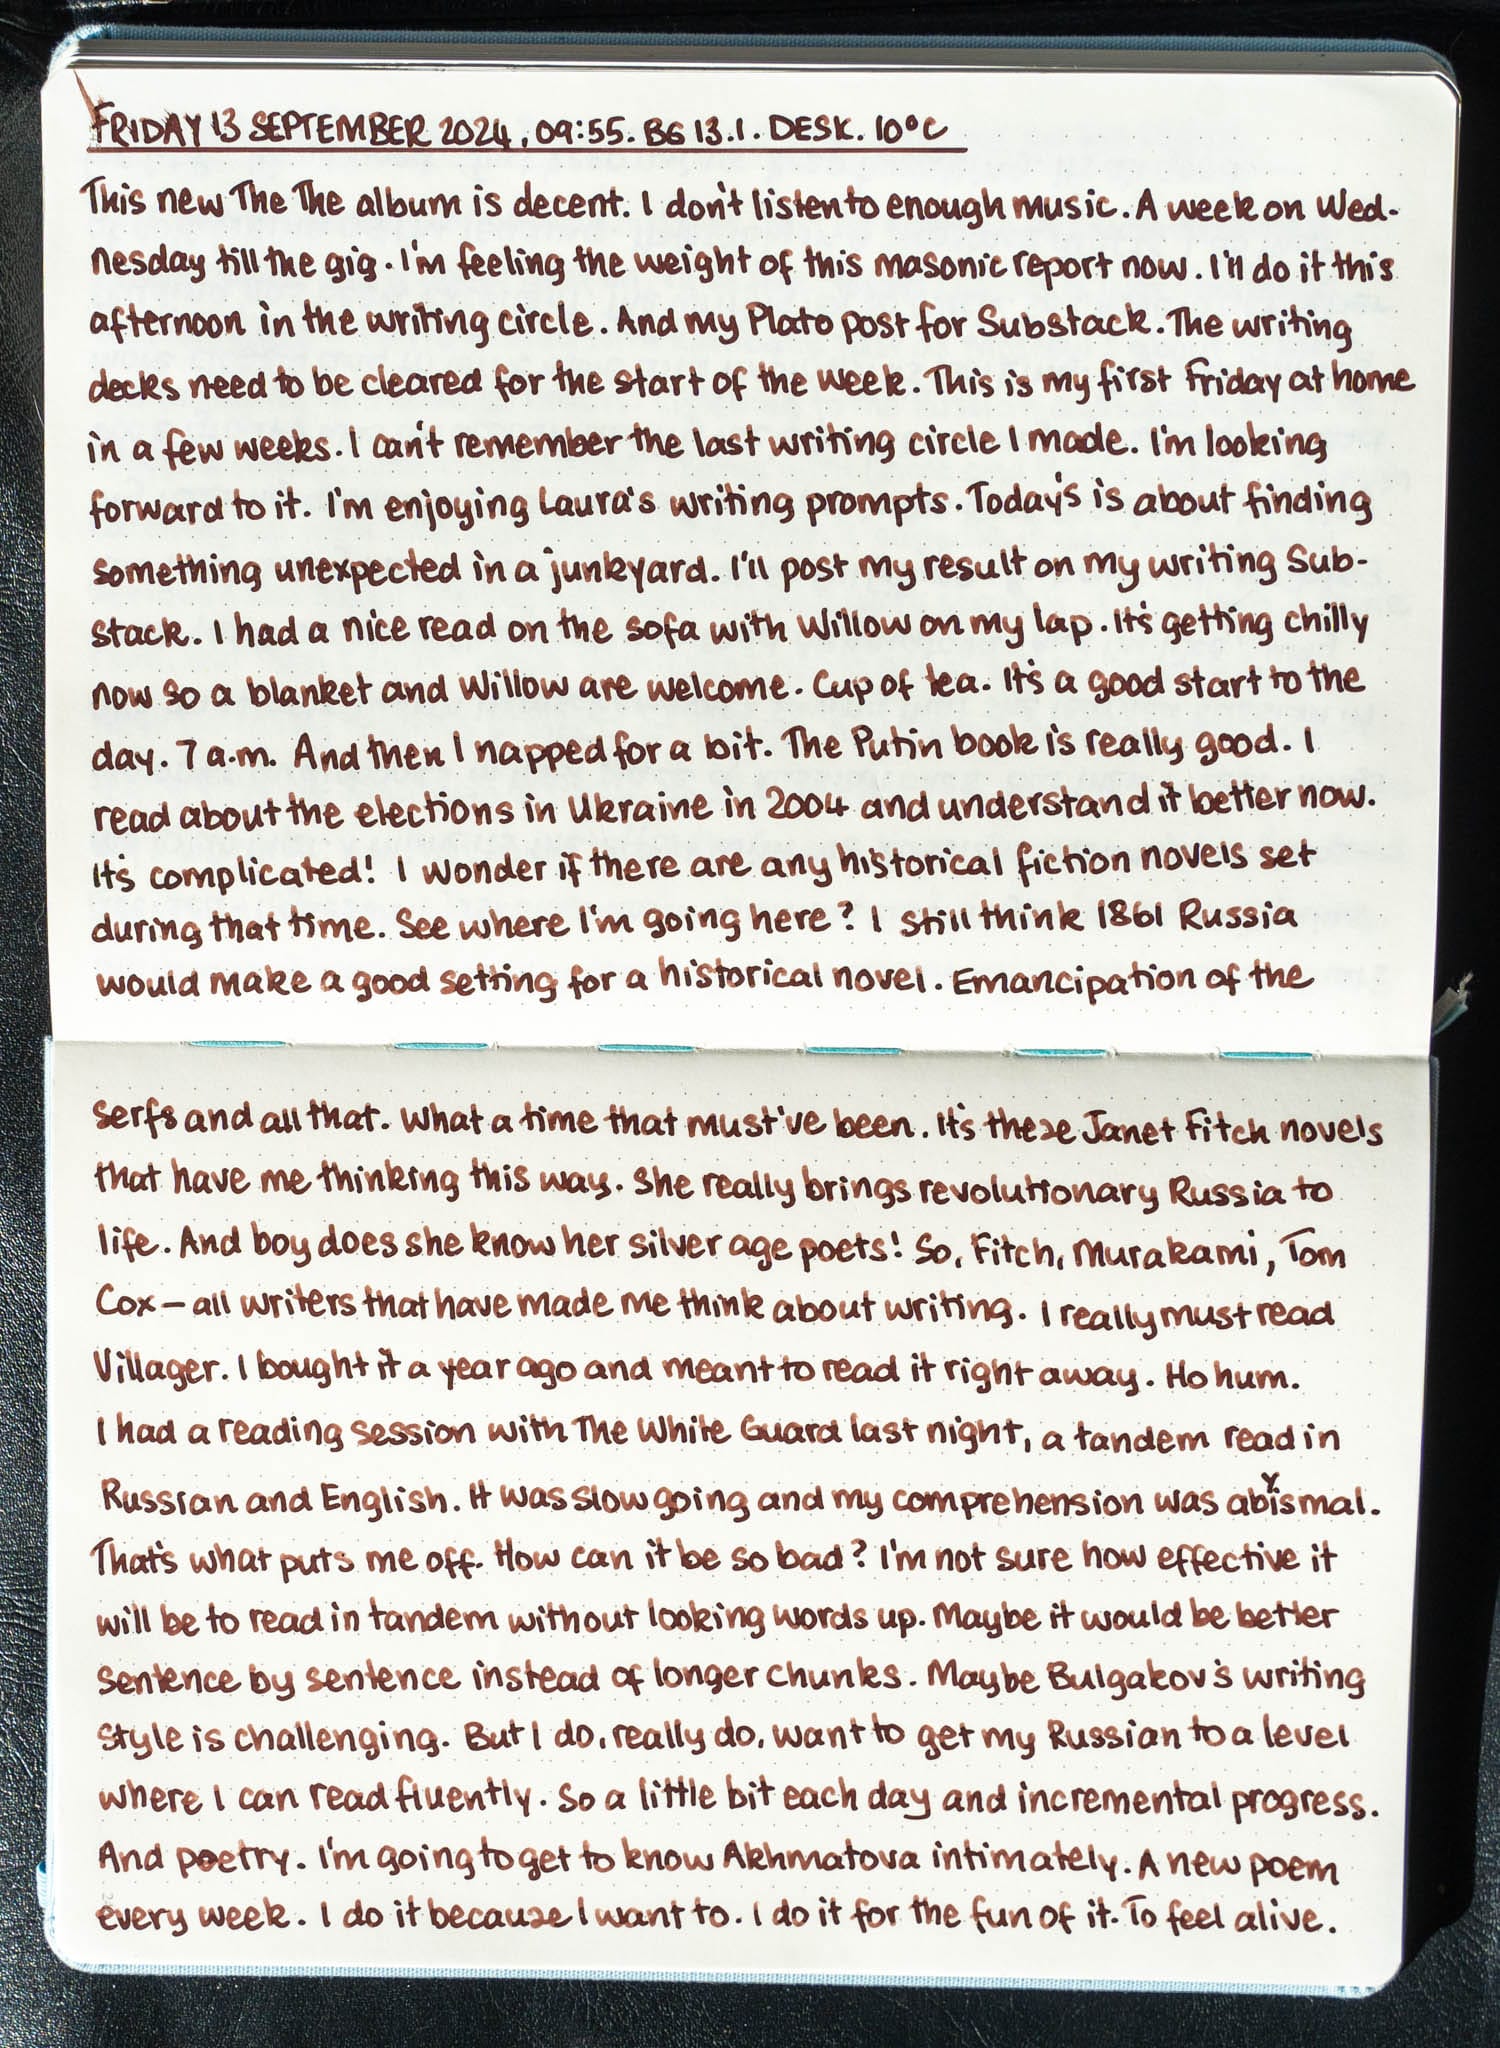 FRIDAY 13 SEPTEMBER 2024, 09:55. BG 13.1. DESK. 10°C
This new The The album is decent. I don't listen to enough music. A week on Wed-
nesday till the gig. I'm feeling the weight of this masonic report now. I'll do it this
afternoon in the writing circle. And my Plato post for Substack. The writing
decks need to be cleared for the start of the week. This is my first Friday at home
in a few weeks. I can't remember the last writing circle I made. I'm looking
forward to it. I'm enjoying Laura's writing prompts. Today's is about finding
something unexpected in a junkyard. I'll post my result on my writing Sub-
stack. I had a nice read on the sofa with Willow on my lap. It's getting chilly
now so a blanket and Willow are welcome. Cup of tea. It's a good start to the
day. 7 a.m. And then I napped for a bit. The Putin book is really good. I
read about the elections in Ukraine in 2004 and understand it better now.
It's complicated! I wonder if there are any historical fiction novels set
during that time. See where I'm going here? I still think 1861 Russia
would make a good setting for a historical novel. Emancipation of the
serfs and all that. What a time that must've been. It's these Janet Fitch novels
that have me thinking this way. She really brings revolutionary Russia to
life. And boy does she know her silver age poets! So, Fitch, Murakami, Tom
Cox – all writers that have made me think about writing. I really must read
Villager. I bought it a year ago and meant to read it right away. Ho hum.
I had a reading session with The White Guard last night, a tandem read in
Russian and English. It was slow going and my comprehension was abysmal.
That's what puts me off. How can it be so bad? I'm not sure how effective it
will be to read in tandem without looking words up. Maybe it would be better
sentence by sentence instead of longer chunks. Maybe Bulgakov's writing
style is challenging. But I do, really do, want to get my Russian to a level
where I can read fluently. So a little bit each day and incremental progress.
And poetry. I'm going to get to know Akhmatova intimately. A new poem
every week. I do it because I want to. I do it for the fun of it. To feel alive.